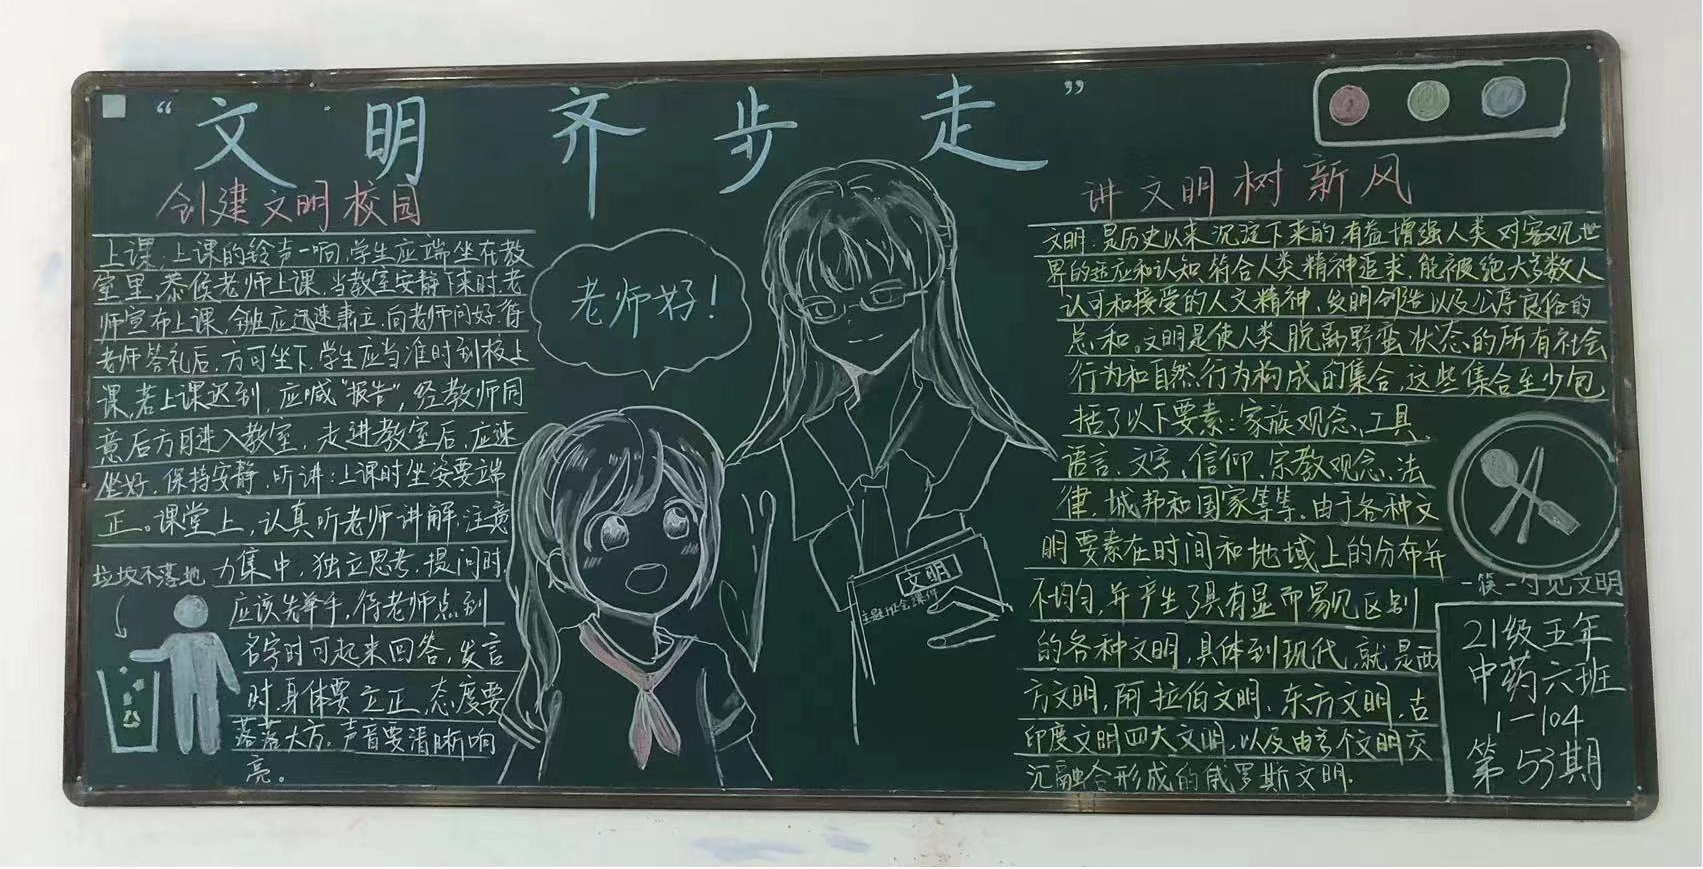 “文明齐步走”
创建文明校园
上课,上课的铃声一响,学生应端坐在教
室里,恭候老师上课,当教室安静下来时,老
师宣布上课,全班应迅速肃立,向老师问好,待
老师答礼后,方可坐下,学生应当准时到校上
课,若上课迟到,应喊“报告”,经教师同
意后方可进入教室,走进教室后,应速
坐好,保持安静,听讲:上课时坐姿要端
正。课堂上,认真听老师讲解,注意
力集中,独立思考,提问时,
应该先举手,待老师点到
名字时可起来回答,发言
时,身体要立正,态度要
落落大方,声音要清晰响
亮。
垃圾不落地
老师好!
文明
主题班会课件
讲文明树新风
文明,是历史以来沉淀下来的有益增强人类对客观世
界的适应和认知符合人类精神追求,能被绝大多数人
认可和接受的人文精神、发明创造以及公序良俗的
总和。文明是使人类脱离野蛮状态的所有社会
行为和自然行为构成的集合,这些集合至少包
括了以下要素:家族观念、工具、
语言、文字、信仰、宗教观念、法
律、城邦和国家等等。由于各种文
明要素在时间和地域上的分布并
不均匀,并产生了具有显而易见区别
的各种文明,具体到现代,就是西
方文明,阿拉伯文明、东方文明,古
印度文明四大文明,以及由多个文明交
汇融合形成的俄罗斯文明.
一筷一勺见文明
21级五年
中药六班
1-104
第53期